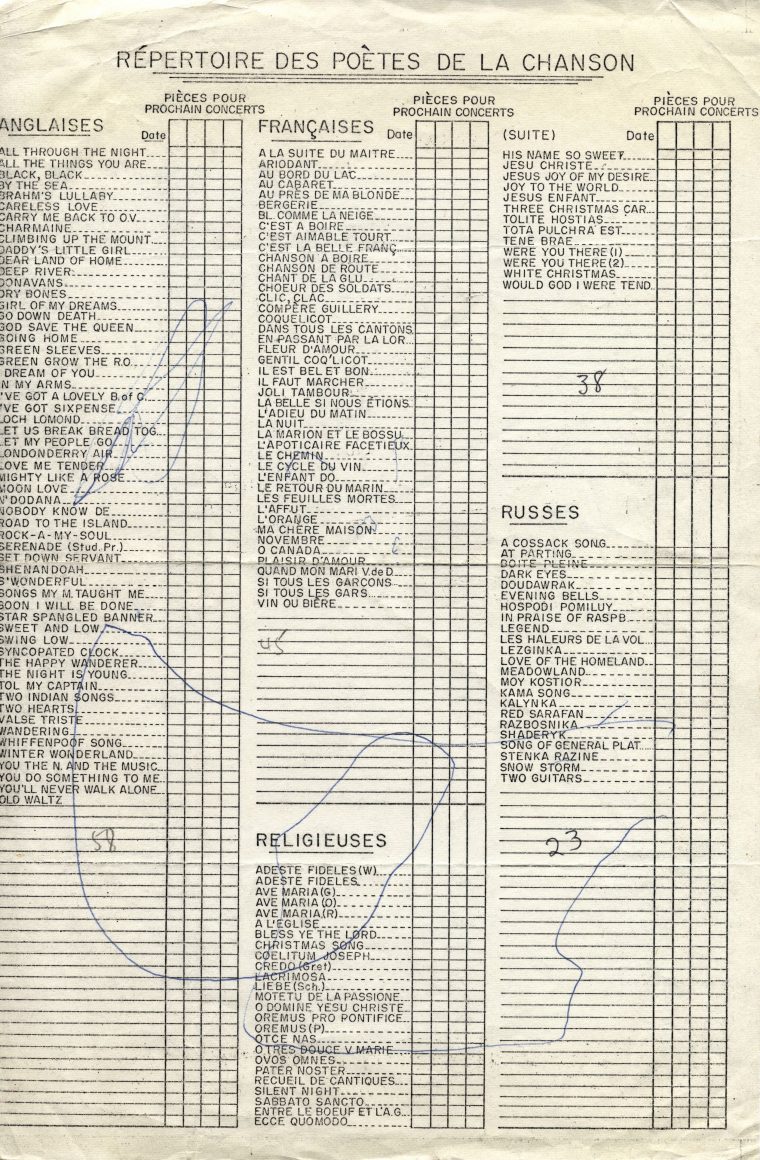 RÉPERTOIRE DES POÈTES DE LA CHANSON
PIÈCES POUR
PROCHAIN CONCERTS
ANGLAISES
Date
ALL THROUGH THE NIGHT
ALL THE THINGS YOU ARE
BLACK, BLACK
BY THE SEA
BRAHM'S LULLABY
CARELESS LOVE
CARRY ME BACK TO O.V.
CHARMAINE
CLIMBING UP THE MOUNT.
DADDY'S LITTLE GIRL
DEAR LAND OF HOME
DEEP RIVER
DONAVANS
DRY BONES
GIRL OF MY DREAMS
GO DOWN DEATH
GOD SAVE THE QUEEN
GOING HOME
GREEN SLEEVES
GREEN GROW THE R.O.
I DREAM OF YOU
IN MY ARMS
I'VE GOT A LOVELY B. of C.
I'VE GOT SIXPENSE
LOCH LOMOND
LET US BREAK BREAD TOG.
LET MY PEOPLE GO
LONDONDERRY AIR
LOVE ME TENDER
MIGHTY LIKE A ROSE
MOON LOVE
N'DODANA
NOBODY KNOW DE
ROAD TO THE ISLAND
ROCK-A-MY-SOUL
SERENADE (Stud. Pr.)
SET DOWN SERVANT
SHENANDOAH
S'WONDERFUL
SONGS MY M. TAUGHT ME
SOON I WILL BE DONE
STAR SPANGLED BANNER
SWEET AND LOW
SWING LOW
SYNCOPATED CLOCK
THE HAPPY WANDERER
THE NIGHT IS YOUNG
TOL MY CAPTAIN
TWO INDIAN SONGS
TWO HEARTS
VALSE TRISTE
WANDERING
WHIFFENPOOF SONG
WINTER WONDERLAND
YOU THE N. AND THE MUSIC
YOU DO SOMETHING TO ME
YOU'LL NEVER WALK ALONE
OLD WALTZ
58
PIÈCES POUR
PROCHAIN CONCERTS
FRANÇAISES
Date
A LA SUITE DU MAITRE
ARIODANT
AU BORD DU LAC
AU CABARET
AU PRÈS DE MA BLONDE
BERGERIE
BL. COMME LA NEIGE
C'EST A BOIRE
C'EST AIMABLE TOURT.
C'EST LA BELLE FRANÇ.
CHANSON A BOIRE
CHANSON DE ROUTE
CHANT DE LA GLU
CHOEUR DES SOLDATS
CLIC, CLAC
COMPÈRE GUILLERY
COQUELICOT
DANS TOUS LES CANTONS
EN PASSANT PAR LA LOR.
FLEUR D'AMOUR
GENTIL COQ'LICOT
IL EST BEL ET BON
IL FAUT MARCHER
JOLI TAMBOUR
LA BELLE SI NOUS ÉTIONS
L'ADIEU DU MATIN
LA NUIT
LA MARION ET LE BOSSU
L'APOTICAIRE FACETIEUX
LE CHEMIN
LE CYCLE DU VIN
L'ENFANT DO
LE RETOUR DU MARIN
LES FEUILLES MORTES
L'AFFUT
L'ORANGE
MA CHÈRE MAISON
NOVEMBRE
O CANADA
PLAISIR D'AMOUR
QUAND MON MARI V. de D.
SI TOUS LES GARCONS
SI TOUS LES GARS
VIN OU BIÈRE
45
RELIGIEUSES
ADESTE FIDELES (W)
ADESTE FIDELES
AVE MARIA (G)
AVE MARIA (O)
AVE MARIA (R)
A L'ÉGLISE
BLESS YE THE LORD
CHRISTMAS SONG
COELITUM JOSEPH
CREDO (Gret)
LACRIMOSA
LIEBE (Sch.)
MOTETU DE LA PASSIONE
O DOMINE YESU CHRISTE
OREMUS PRO PONTIFICE
OREMUS (P)
OTCE NAS
O TRES DOUCE V. MARIE
OVOS OMNES
PATER NOSTER
RECUEIL DE CANTIQUES
SILENT NIGHT
SABBATO SANCTO
ENTRE LE BOEUF ET L'A.G.
ECCE QUOMODO
PIÈCES POUR
PROCHAIN CONCERTS
(SUITE)
Date
HIS NAME SO SWEET
JESU CHRISTE
JESUS JOY OF MY DESIRE
JOY TO THE WORLD
JESUS ENFANT
THREE CHRISTMAS CAR.
TOLITE HOSTIAS
TOTA PULCHRA EST
TENE BRAE
WERE YOU THERE (1)
WERE YOU THERE (2)
WHITE CHRISTMAS
WOULD GOD I WERE TEND.
38
RUSSES
A COSSACK SONG
AT PARTING
BOITE PLEINE
DARK EYES
DOUDAWRAK
EVENING BELLS
HOSPODI POMILUY
IN PRAISE OF RASPB.
LEGEND
LES HALEURS DE LA VOL.
LEZGINKA
LOVE OF THE HOMELAND
MEADOWLAND
MOY KOSTIOR
KAMA SONG
KALYNKA
RED SARAFAN
RAZBOSNIKA
SHADERYK
SONG OF GENERAL PLAT.
STENKA RAZINE
SNOW STORM
TWO GUITARS
23